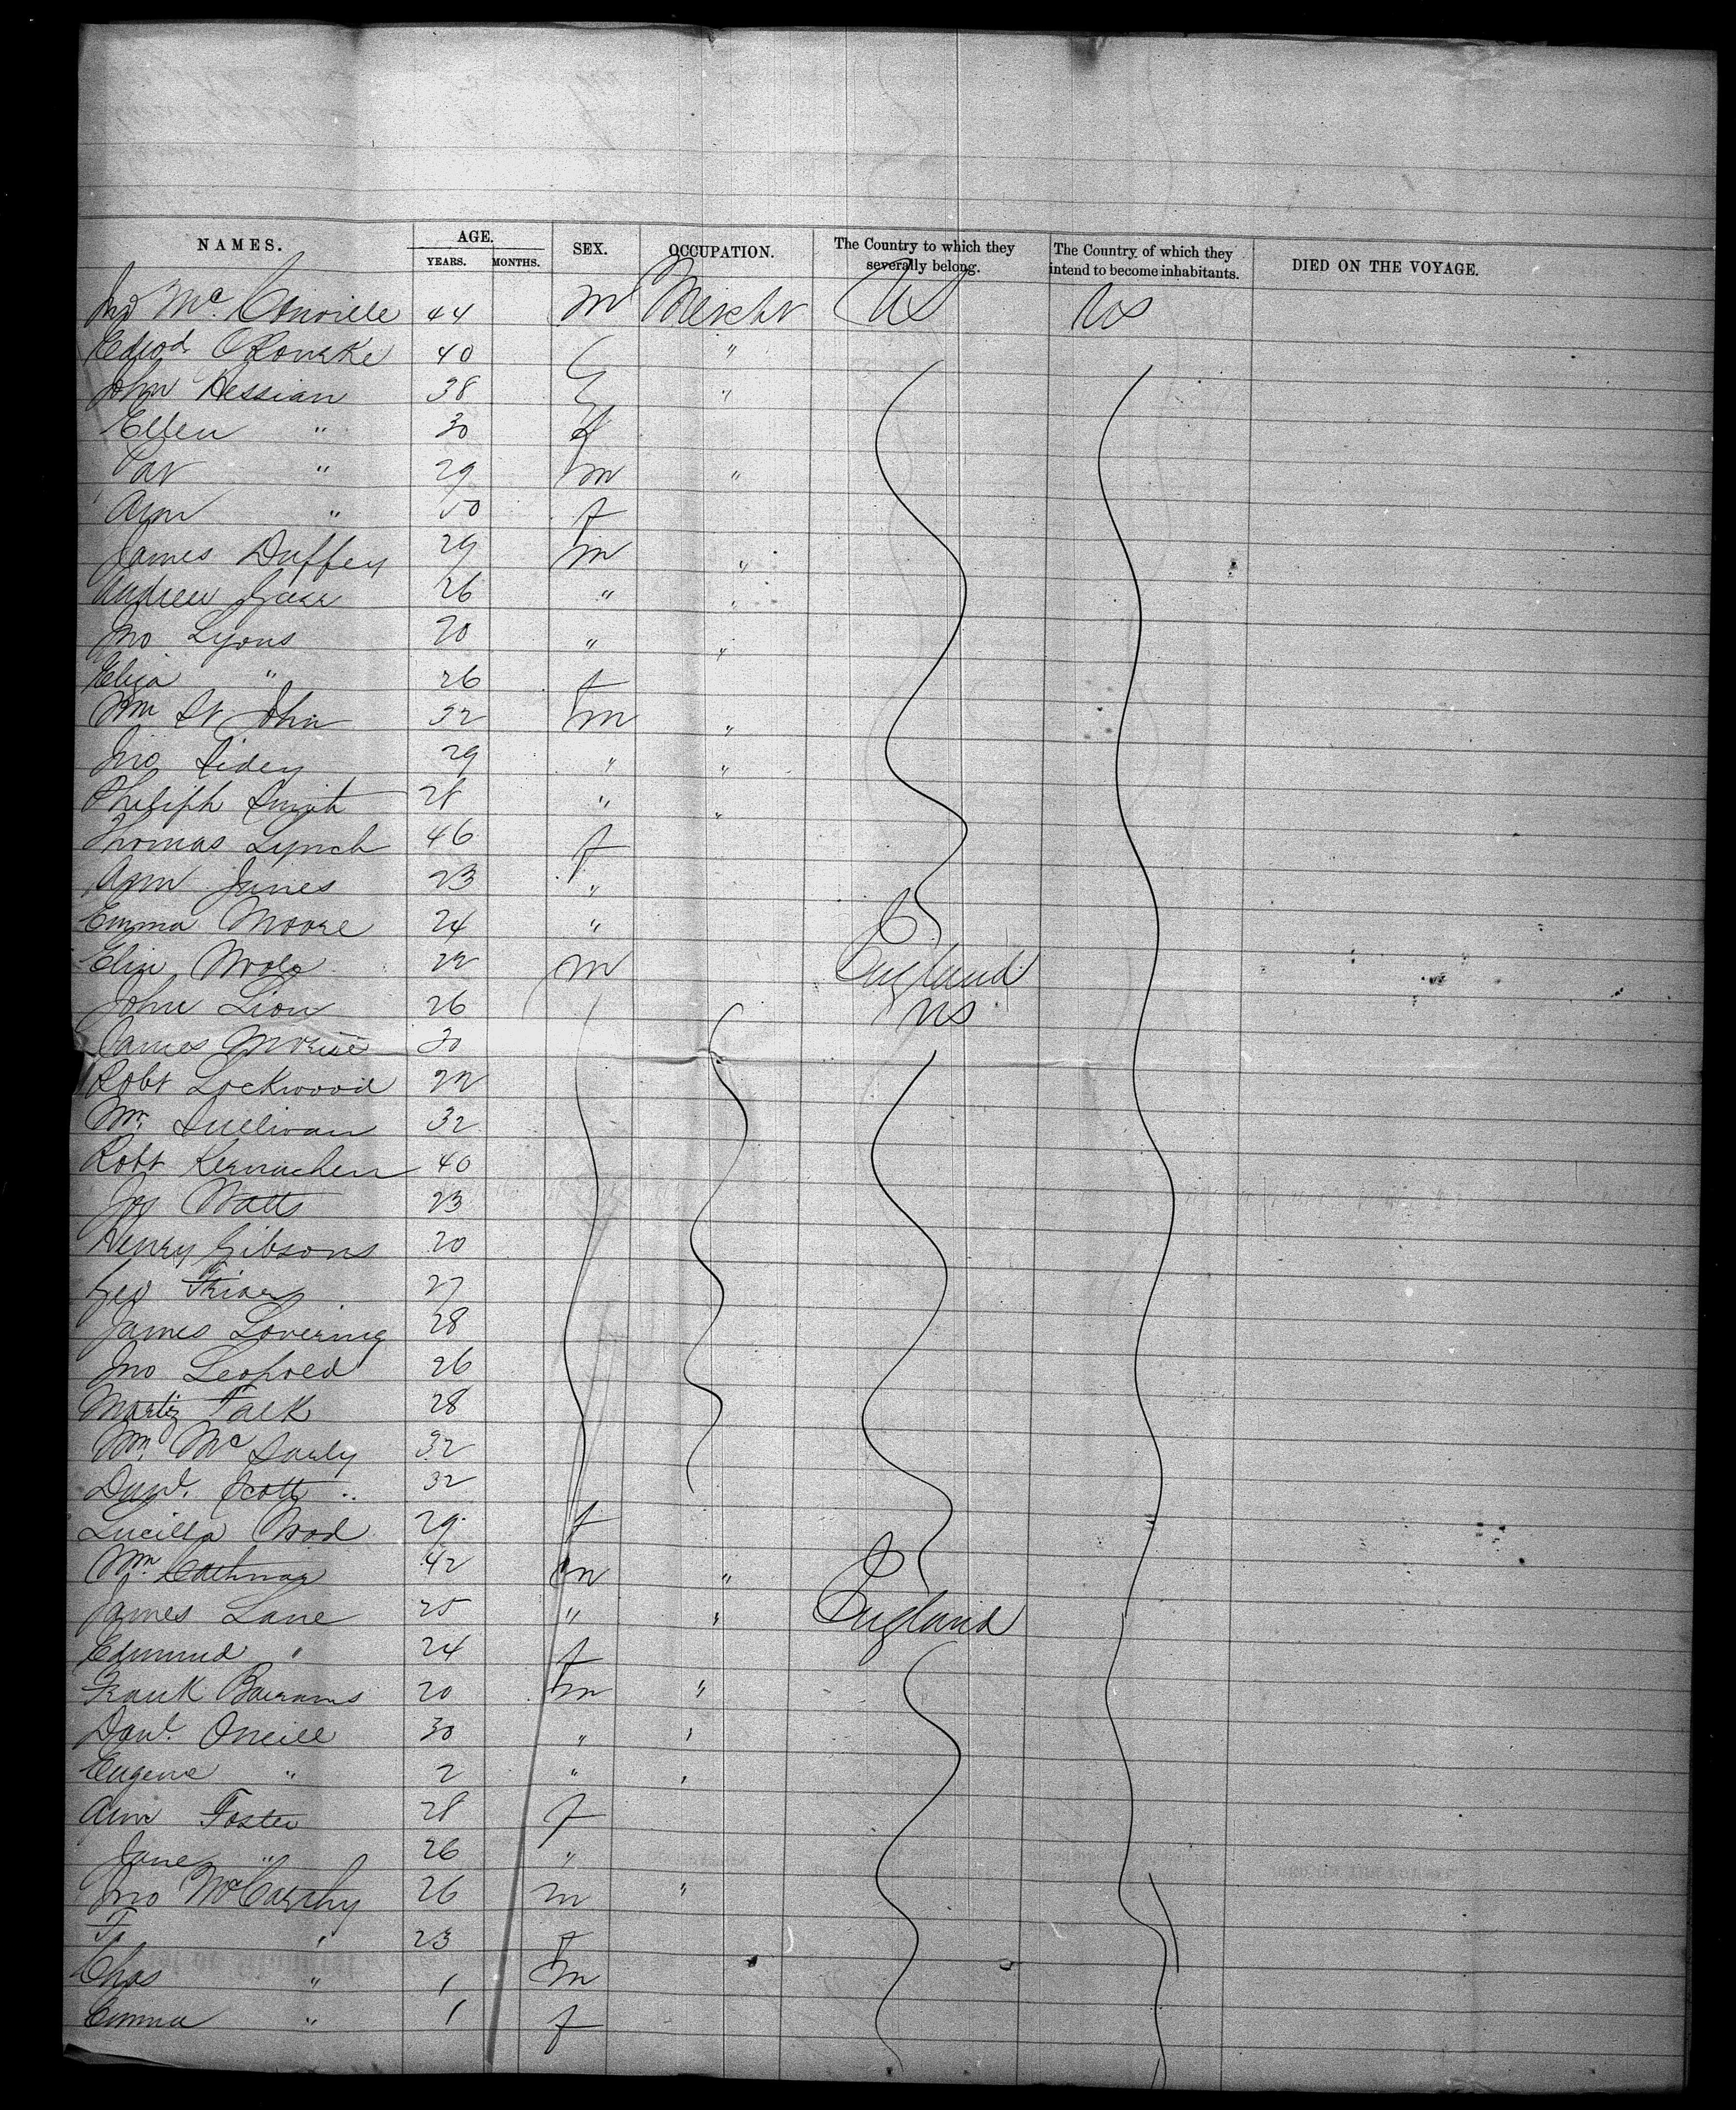 NAMES. AGE. YEARS. MONTHS. SEX. OCCUPATION. The Country to which they severally belong. The Country of which they intend to become inhabitants. DIED ON THE VOYAGE.
Jno Mc Conville 44 m Mercht US US
Edwd ORourke 40 "
John Hessian 38 "
Ellen " 30 f
Pat " 29 m "
Ann " 50 f
James Duffey 29 m "
Andrew 26 " "
Jno Lyons 20 " "
Eliza " 26 f
Wm St John 32 m "
Jno 29 " "
Philiph Smith 28 " "
Thomas Lynch 46 f
Ann James 23 "
Emma Moore 24 "
22 m England
John Lion 26 US
James 30
Robt Lockwood 22
Wm Sullivan 32
Robt Kernachen 40
Jos Watts 23
Henry Gibsons 20
Geo 27
James Lovering 28
Jno Leopold 26
28
Wm Mc 32
Danl. Scott 32
Lucilla Wood 29 f
Wm 42 m "
James Lane 25 " " England
Edmund " 24 f
Frank 20 m "
Danl. Oneill 30 " "
Eugene " 2 " "
Ann Foster 28 f
Jane " 26 "
Jno McCarthy 26 m "
F " 23 f
Chas " 1 m
Emma " 1 f